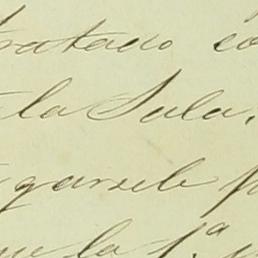 tratado co
la Sala,
garsele p
ue la 1.ª